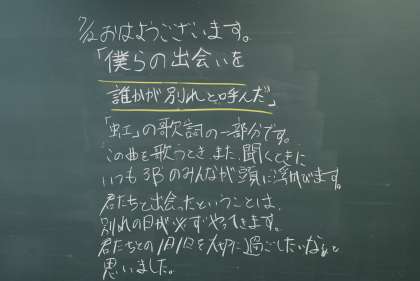 7/2 おはようございます。
「僕らの出会いを
誰かが別れと呼んだ」
「虹」の歌詞の一部分です。
この曲を歌うとき、また、聞くときに
いつも3Bのみんなが頭に浮かびます。
君たちと出会ったということは、
別れの日が必ずやってきます。
君たちとの1日1日を大切に過ごしたいなぁと
思いました。